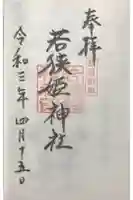 奉拝
若狭姫神社
令和三年四月十五日